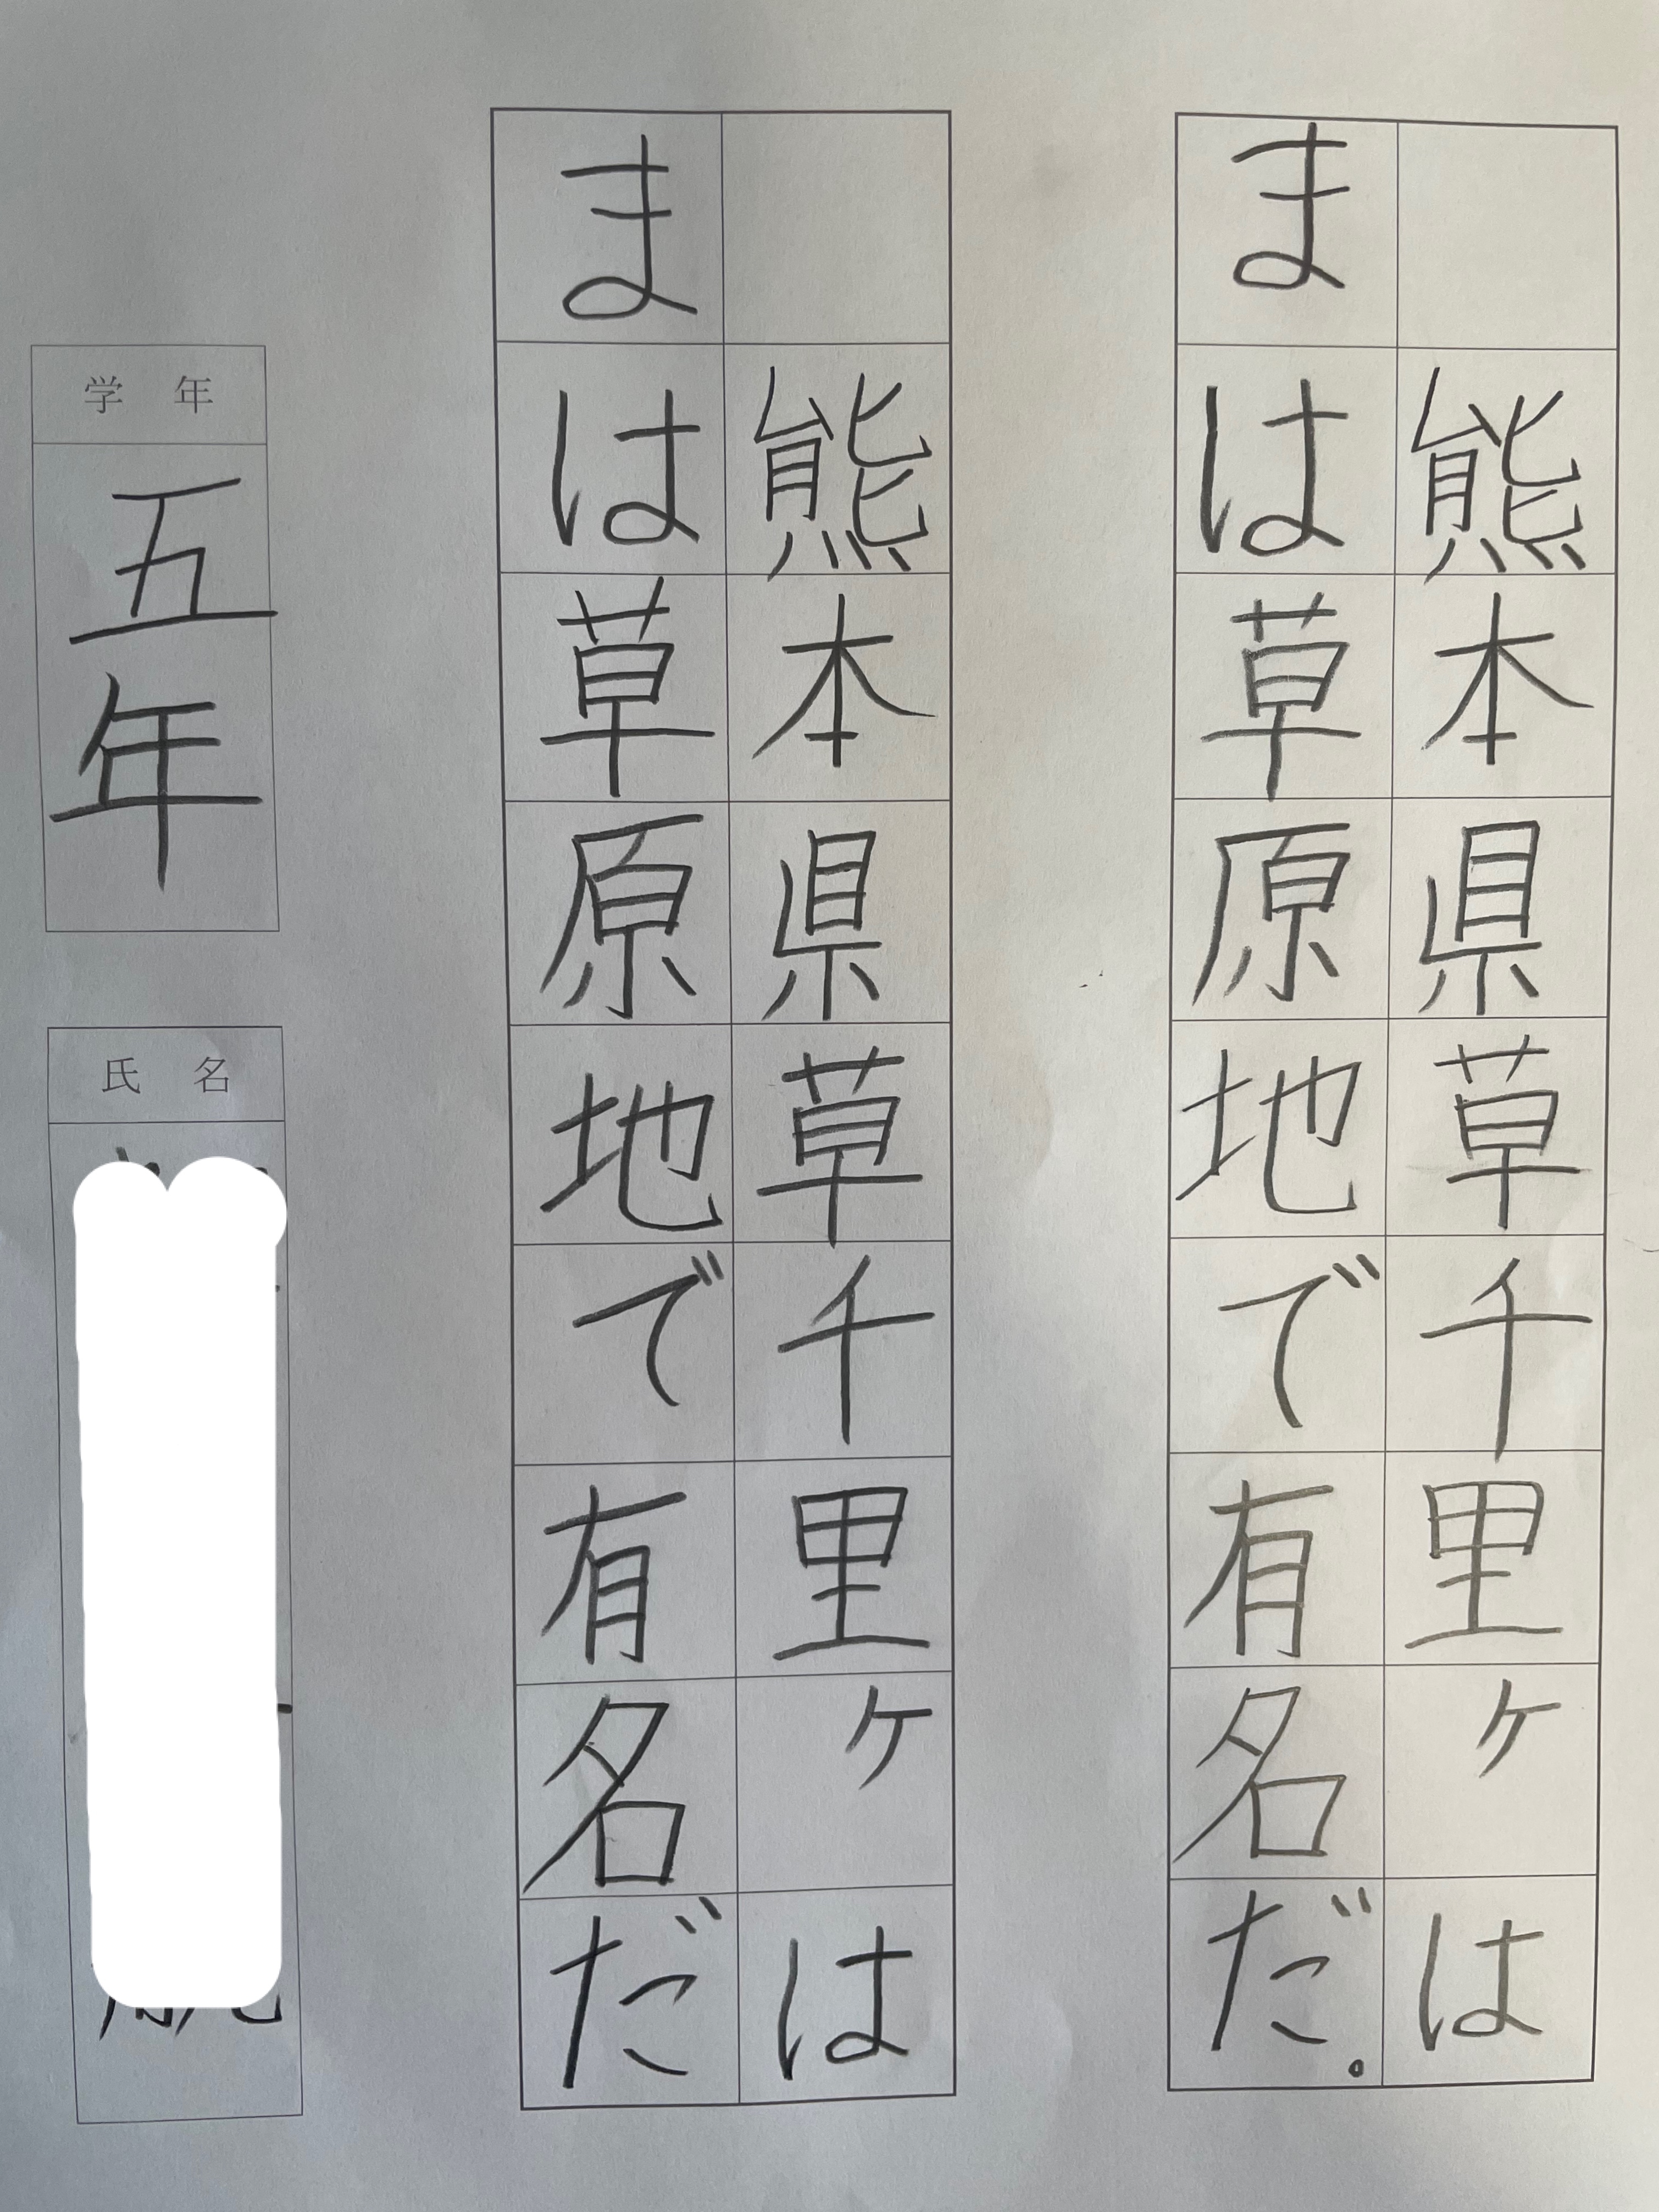 熊本県草千里ヶは
まは草原地で有名だ。
熊本県草千里ヶは
まは草原地で有名だ
学年
五年
氏名